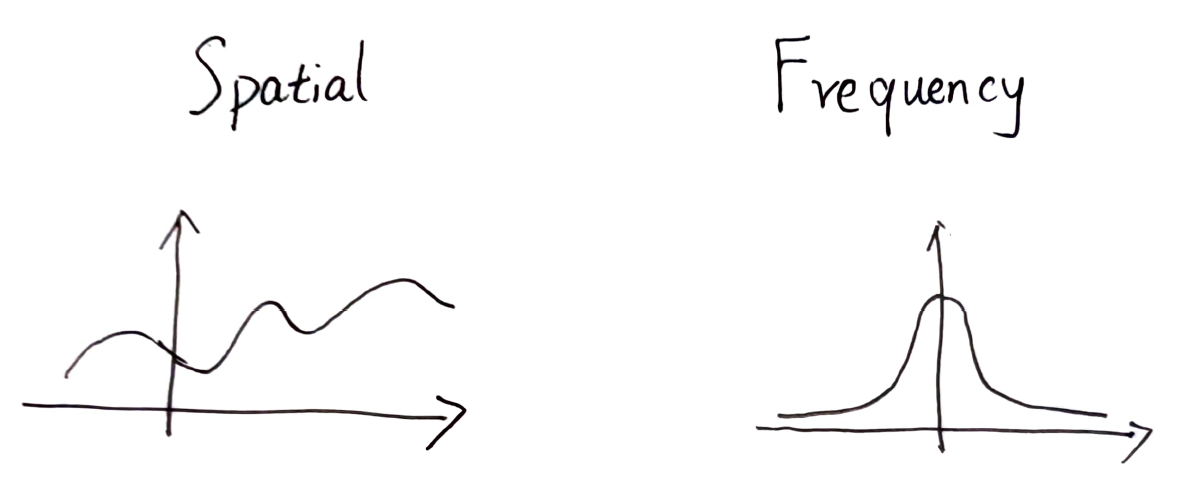 Spatial
Frequency